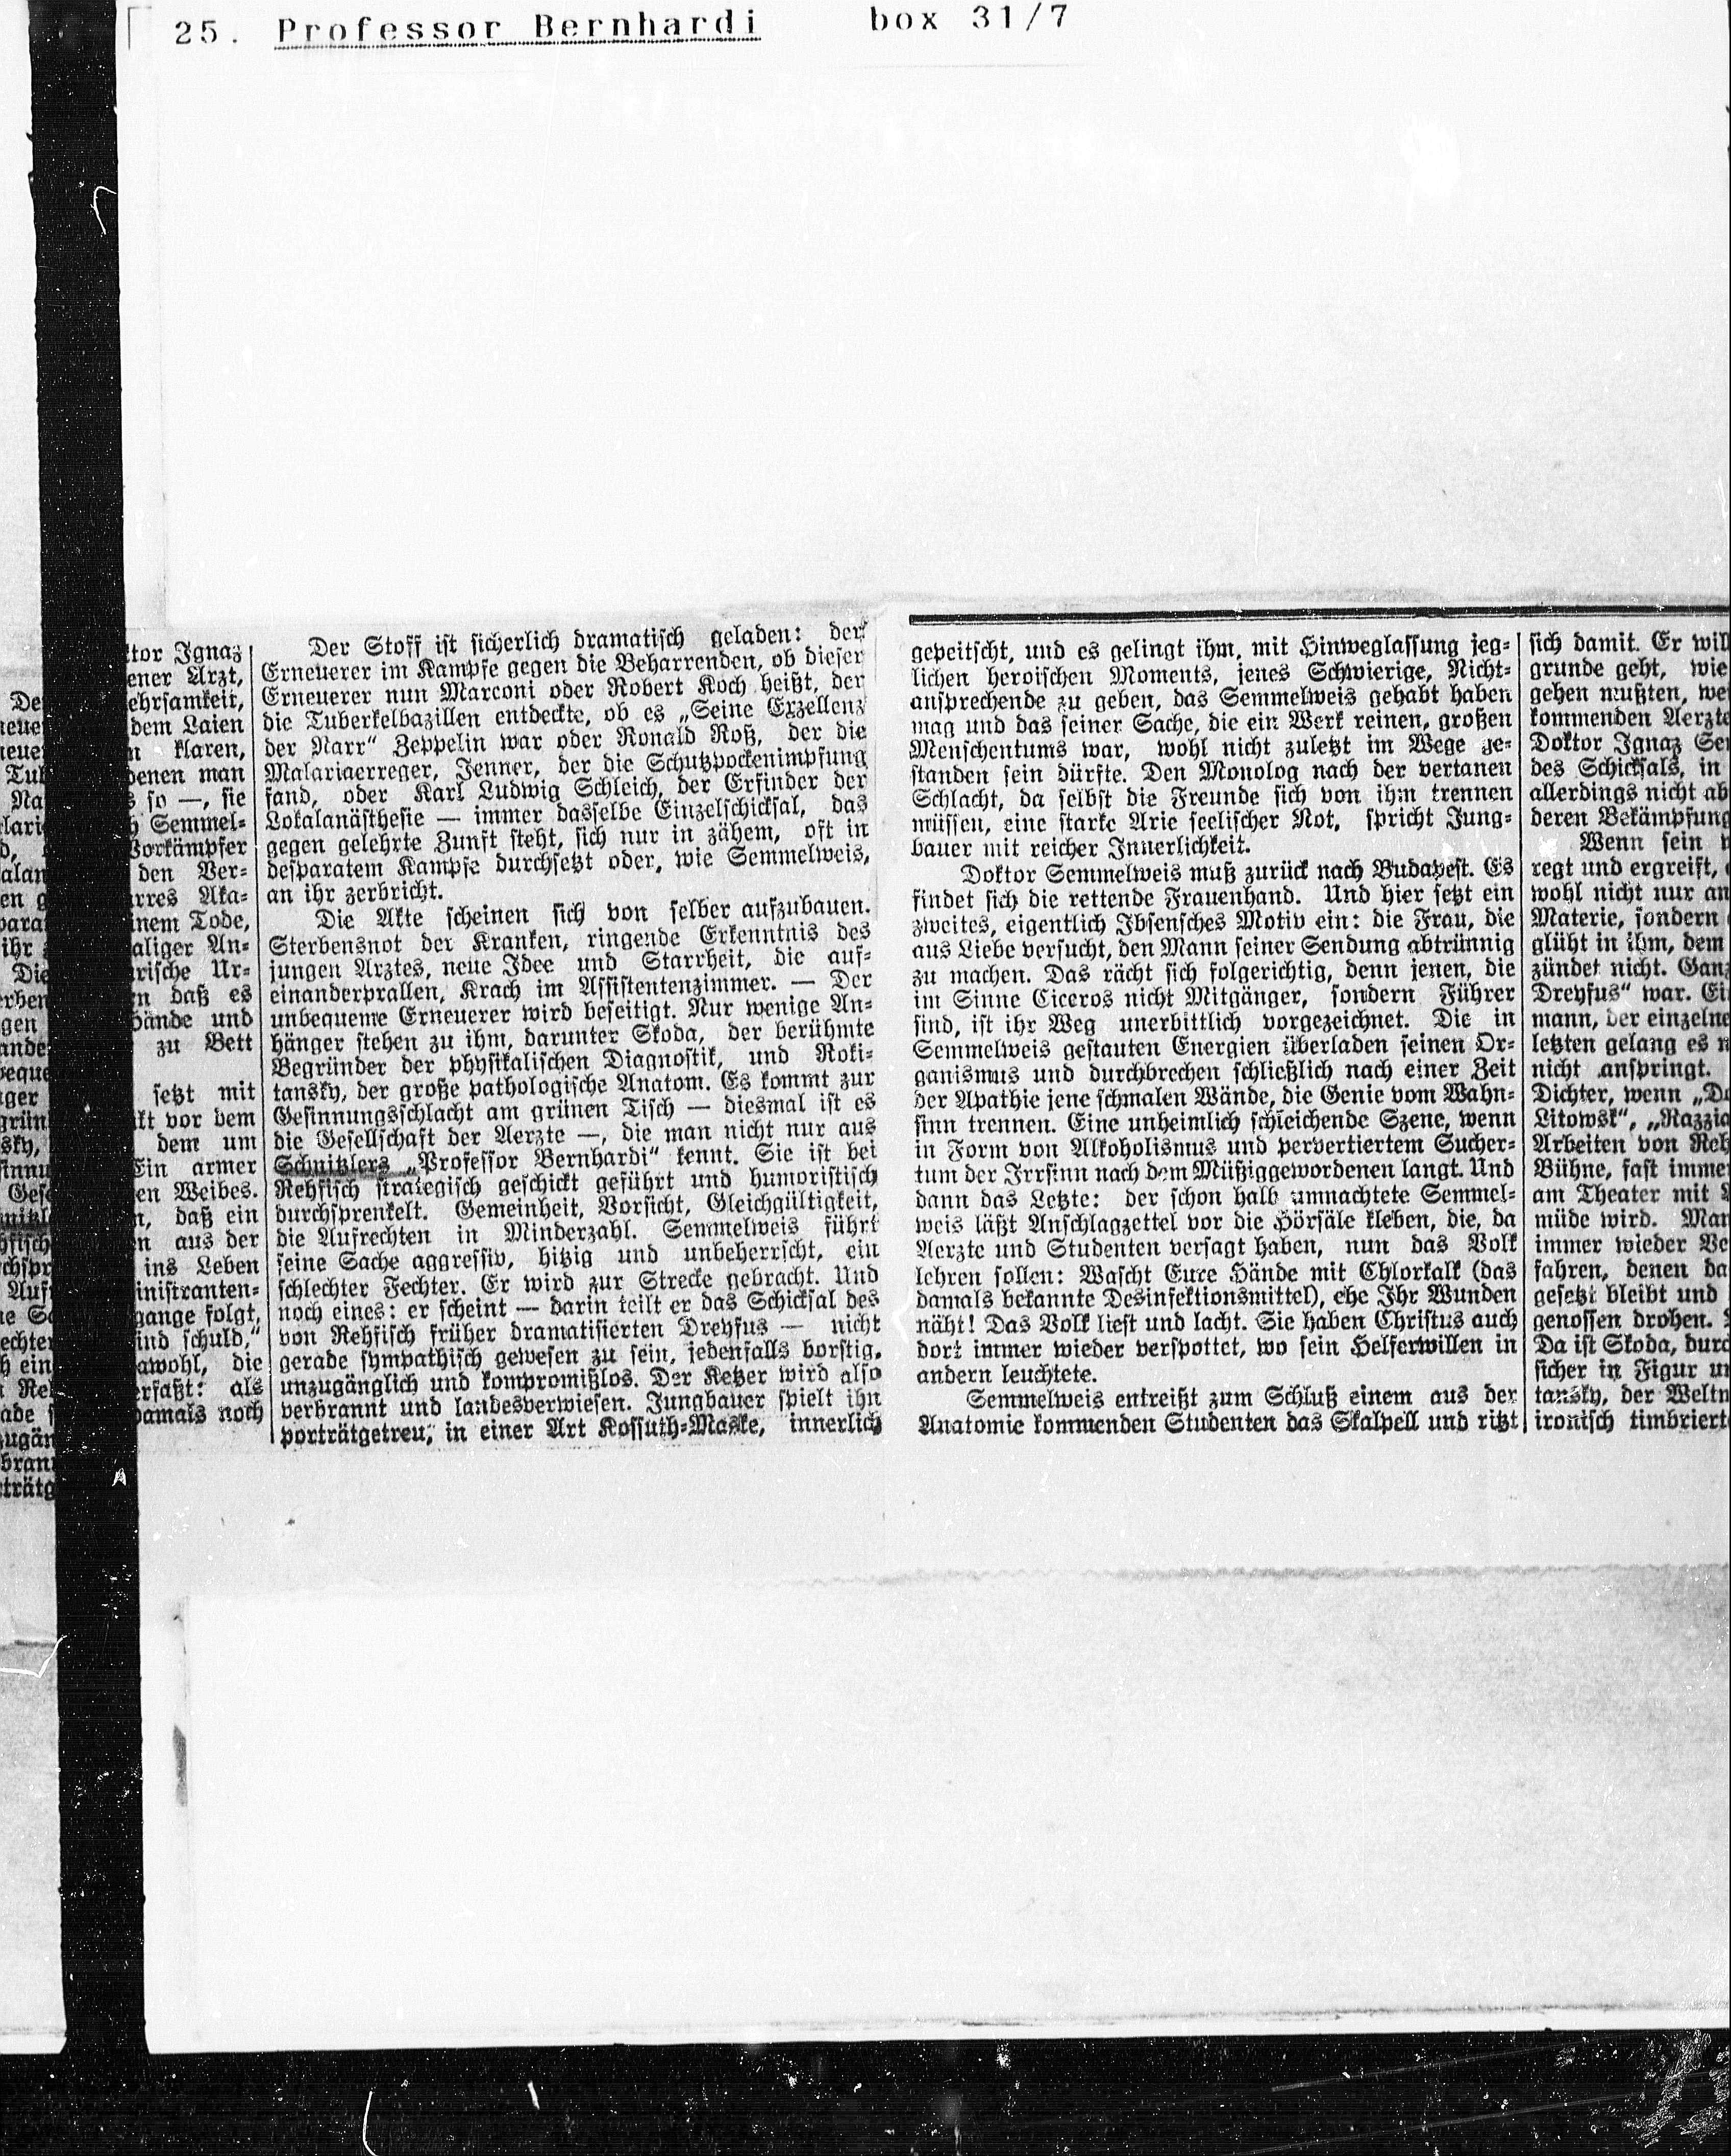 25. Professor Bernhardi box 31/7
tor Ignaz
ener Arzt,
ehrsamkeit,
dem Laien
n klaren,
denen man
s so —, sie
h Semmel=
Vorkämpfer
den Ver=
rres Aka=
nem Tode,
aliger An=
rische Ur=
n daß es
Hände und
zu Bett
setzt mit
kt vor dem
dem um
Ein armer
en Weibes.
n, daß ein
n aus der
ins Leben
inistranten=
gange folgt,
ind schuld,"
awohl, die
erfaßt: als
damals noch
Der Stoff ist sicherlich dramatisch geladen: der
Erneuerer im Kampfe gegen die Beharrenden, ob dieser
Erneuerer nun Marconi oder Robert Koch heißt, der
die Tuberkelbazillen entdeckte, ob es „Seine Exzellenz
der Narr" Zeppelin war oder Ronald Roß, der die
Malariaerreger, Jenner, der die Schutzpockenimpfung
fand, oder Karl Ludwig Schleich, der Erfinder der
Lokalanästhesie — immer dasselbe Einzelschicksal, das
gegen gelehrte Zunft steht, sich nur in zähem, oft in
desparatem Kampfe durchsetzt oder, wie Semmelweis,
an ihr zerbricht.
Die Akte scheinen sich von selber aufzubauen.
Sterbensnot der Kranken, ringende Erkenntnis des
jungen Arztes, neue Idee und Starrheit, die auf=
einanderprallen, Krach im Assistentenzimmer. — Der
unbequeme Erneuerer wird beseitigt. Nur wenige An=
hänger stehen zu ihm, darunter Skoda, der berühmte
Begründer der physikalischen Diagnostik, und Roki=
tansky, der große pathologische Anatom. Es kommt zur
Gesinnungsschlacht am grünen Tisch — diesmal ist es
die Gesellschaft der Aerzte —, die man nicht nur aus
Schnitzlers „Professor Bernhardi" kennt. Sie ist bei
Rehfisch strategisch geschickt geführt und humoristisch
durchsprenkelt. Gemeinheit, Vorsicht, Gleichgültigkeit,
die Aufrechten in Minderzahl. Semmelweis führt
seine Sache aggressiv, hitzig und unbeherrscht, ein
schlechter Fechter. Er wird zur Strecke gebracht. Und
noch eines: er scheint — darin teilt er das Schicksal des
von Rehfisch früher dramatisierten Dreyfus — nicht
gerade sympathisch gewesen zu sein, jedenfalls borstig,
unzugänglich und kompromißlos. Der Ketzer wird also
verbrannt und landesverwiesen. Jungbauer spielt ihn
porträtgetreu, in einer Art Kossuth=Maske, innerlich
gepeitscht, und es gelingt ihm, mit Hinweglassung jeg=
lichen heroischen Moments, jenes Schwierige, Nicht=
ansprechende zu geben, das Semmelweis gehabt haben
mag und das seiner Sache, die ein Werk reinen, großen
Menschentums war, wohl nicht zuletzt im Wege ge=
standen sein dürfte. Den Monolog nach der vertanen
Schlacht, da selbst die Freunde sich von ihm trennen
müssen, eine starke Arie seelischer Not, spricht Jung=
bauer mit reicher Innerlichkeit.
Doktor Semmelweis muß zurück nach Budapest. Es
findet sich die rettende Frauenhand. Und hier setzt ein
zweites, eigentlich Ibsensches Motiv ein: die Frau, die
aus Liebe versucht, den Mann seiner Sendung abtrünnig
zu machen. Das rächt sich folgerichtig, denn jenen, die
im Sinne Ciceros nicht Mitgänger, sondern Führer
sind, ist ihr Weg unerbittlich vorgezeichnet. Die in
Semmelweis gestauten Energien überladen seinen Or=
ganismus und durchbrechen schließlich nach einer Zeit
der Apathie jene schmalen Wände, die Genie vom Wahn=
sinn trennen. Eine unheimlich schleichende Szene, wenn
in Form von Alkoholismus und pervertiertem Sucher=
tum der Irrsinn nach dem Müßiggewordenen langt. Und
dann das Letzte: der schon halb umnachtete Semmel=
weis läßt Anschlagzettel vor die Hörsäle kleben, die, da
Aerzte und Studenten versagt haben, nun das Volk
lehren sollen: Wascht Eure Hände mit Chlorkalk (das
damals bekannte Desinfektionsmittel), ehe Ihr Wunden
näht! Das Volk liest und lacht. Sie haben Christus auch
dort immer wieder verspottet, wo sein Helferwillen in
andern leuchtete.
Semmelweis entreißt zum Schluß einem aus der
Anatomie kommenden Studenten das Skalpell und ritzt
sich damit. Er will
grunde geht, wie
gehen mußten, we
kommenden Aerzte
Doktor Ignaz Se
des Schicksals, in
allerdings nicht ab
deren Bekämpfung
Wenn sein
regt und ergreift,
wohl nicht nur an
Materie, sondern
glüht in ihm, dem
zündet nicht. Ganz
Dreyfus" war. Ei
mann, der einzelne
letzten gelang es n
nicht anspringt.
Dichter, wenn „D
Litowsk", „Razzia
Arbeiten von Reh
Bühne, fast imme
am Theater mit
müde wird. Man
immer wieder Ve
fahren, denen da
gesetzt bleibt und
genossen drohen.
Da ist Skoda, durc
sicher in Figur un
tansky, der Weltm
ironisch timbrierte